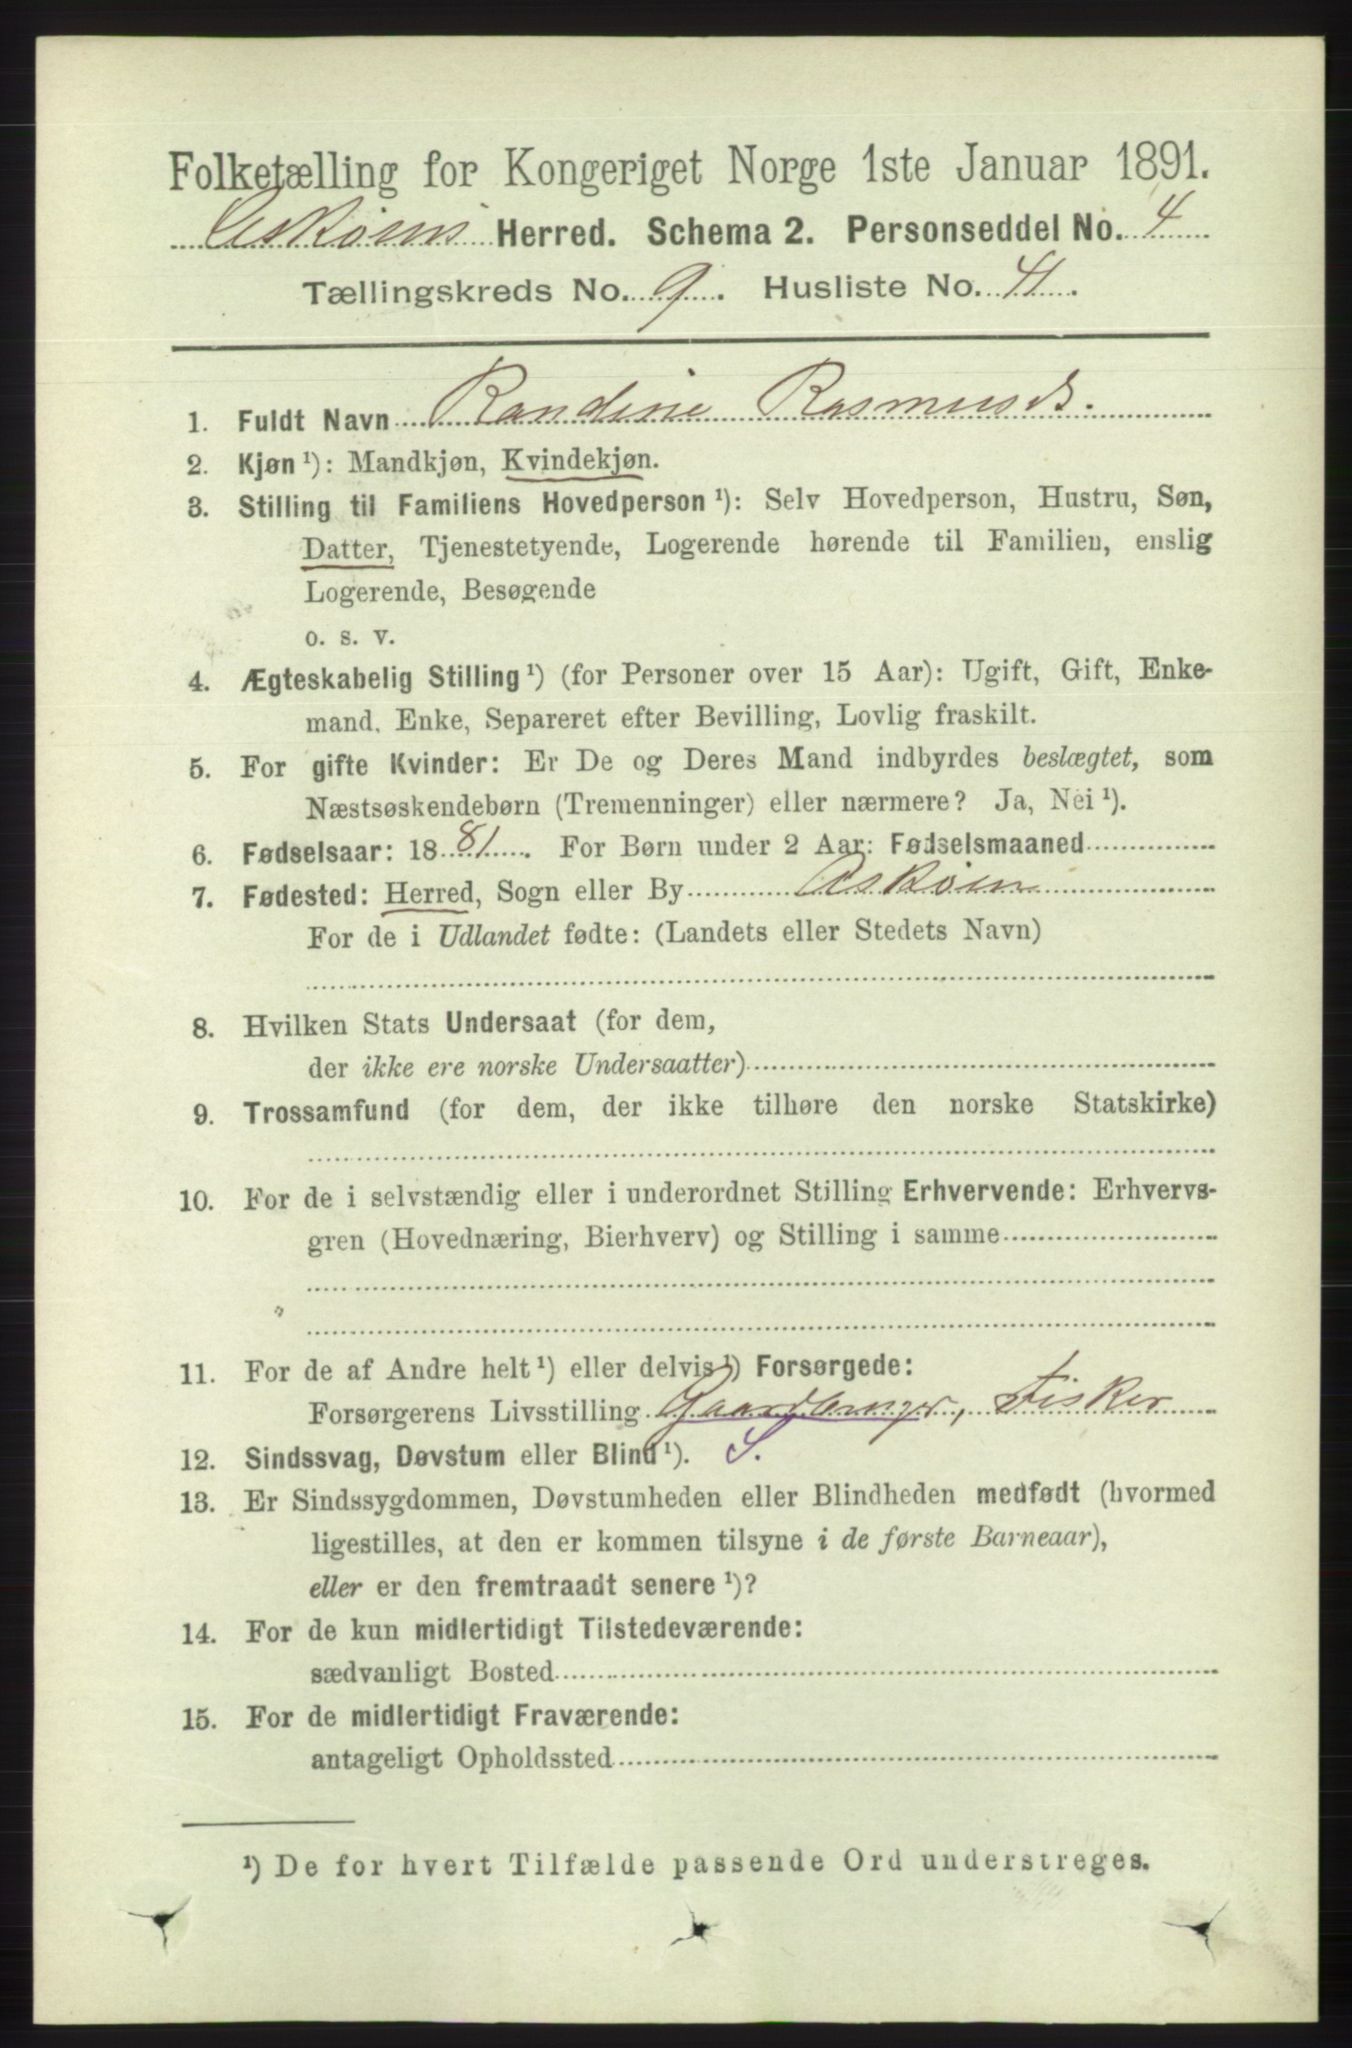 Folketælling for Kongeriget Norge 1ste Januar 1891.
Askøens Herred. Schema 2. Personseddel No. 4
Tællingskreds No. 9. Husliste No. 41.
1. Fuldt Navn Randine Rasmusd.
2. Kjøn ¹): Mandkjøn, Kvindekjøn.
3. Stilling til Familiens Hovedperson ¹): Selv Hovedperson, Hustru, Søn,
Datter, Tjenestetyende, Logerende hørende til Familien, enslig
Logerende, Besøgende
o. s. v.
4. Ægteskabelig Stilling ¹) (for Personer over 15 Aar): Ugift, Gift, Enke-
mand, Enke, Separeret efter Bevilling, Lovlig fraskilt.
5. For gifte Kvinder: Er De og Deres Mand indbyrdes beslægtet, som
Næstsøskendebørn (Tremenninger) eller nærmere? Ja, Nei ¹).
6. Fødselsaar: 1881. For Børn under 2 Aar: Fødselsmaaned
7. Fødested: Herred, Sogn eller By Askøen
For de i Udlandet fødte: (Landets eller Stedets Navn)
8. Hvilken Stats Undersaat (for dem,
der ikke ere norske Undersaatter)
9. Trossamfund (for dem, der ikke tilhøre den norske Statskirke)
10. For de i selvstændig eller i underordnet Stilling Erhvervende: Erhvervs-
gren (Hovednæring, Bierhverv) og Stilling i samme
11. For de af Andre helt ¹) eller delvis ¹) Forsørgede:
Forsørgerens Livsstilling Gaardbruger, Fisker
12. Sindssvag, Døvstum eller Blind ¹). S.
13. Er Sindssygdommen, Døvstumheden eller Blindheden medfødt (hvormed
ligestilles, at den er kommen tilsyne i de første Barneaar),
eller er den fremtraadt senere ¹)?
14. For de kun midlertidigt Tilstedeværende:
sædvanligt Bosted
15. For de midlertidigt Fraværende:
antageligt Opholdssted
¹) De for hvert Tilfælde passende Ord understreges.